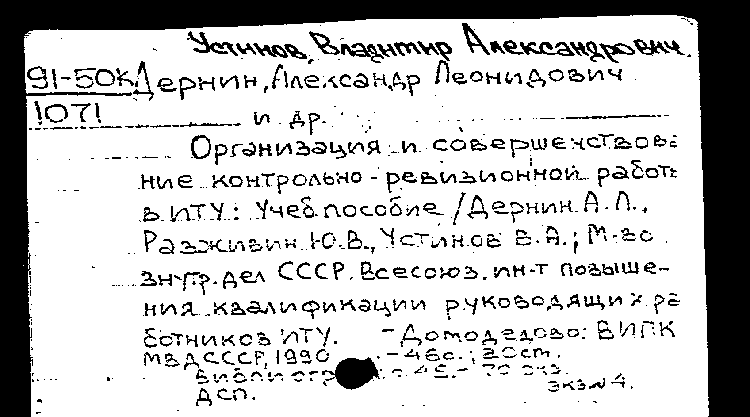 Устинов, Владимир Александрович.
91-50к Дернин, Александр Леонидович
1071 и др.
Организация и совершенствова
ние контрольно-ревизионной работы
в ИТУ: Учеб. пособие / Дернин А.Л.,
Разживин Ю.В., Устинов В.А.; М-во
внутр. дел СССР. Всесоюз. ин-т повыше-
ния квалификации руководящих ра
ботников ИТУ. - Домодедово: ВИПК
МВД СССР, 1990. - 46с.; 20см.
Библиогр.: с. 70 экз.
экз.№4.
ДСП.